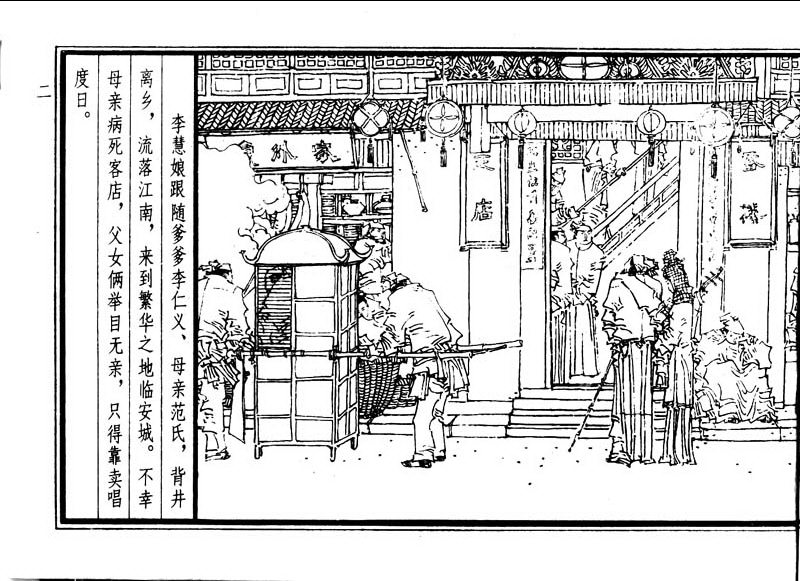 李慧娘跟随爹爹李仁义、母亲范氏，背井
离乡，流落江南，来到繁华之地临安城。不幸
母亲病死客店，父女俩举目无亲，只得靠卖唱
度日。
二
店